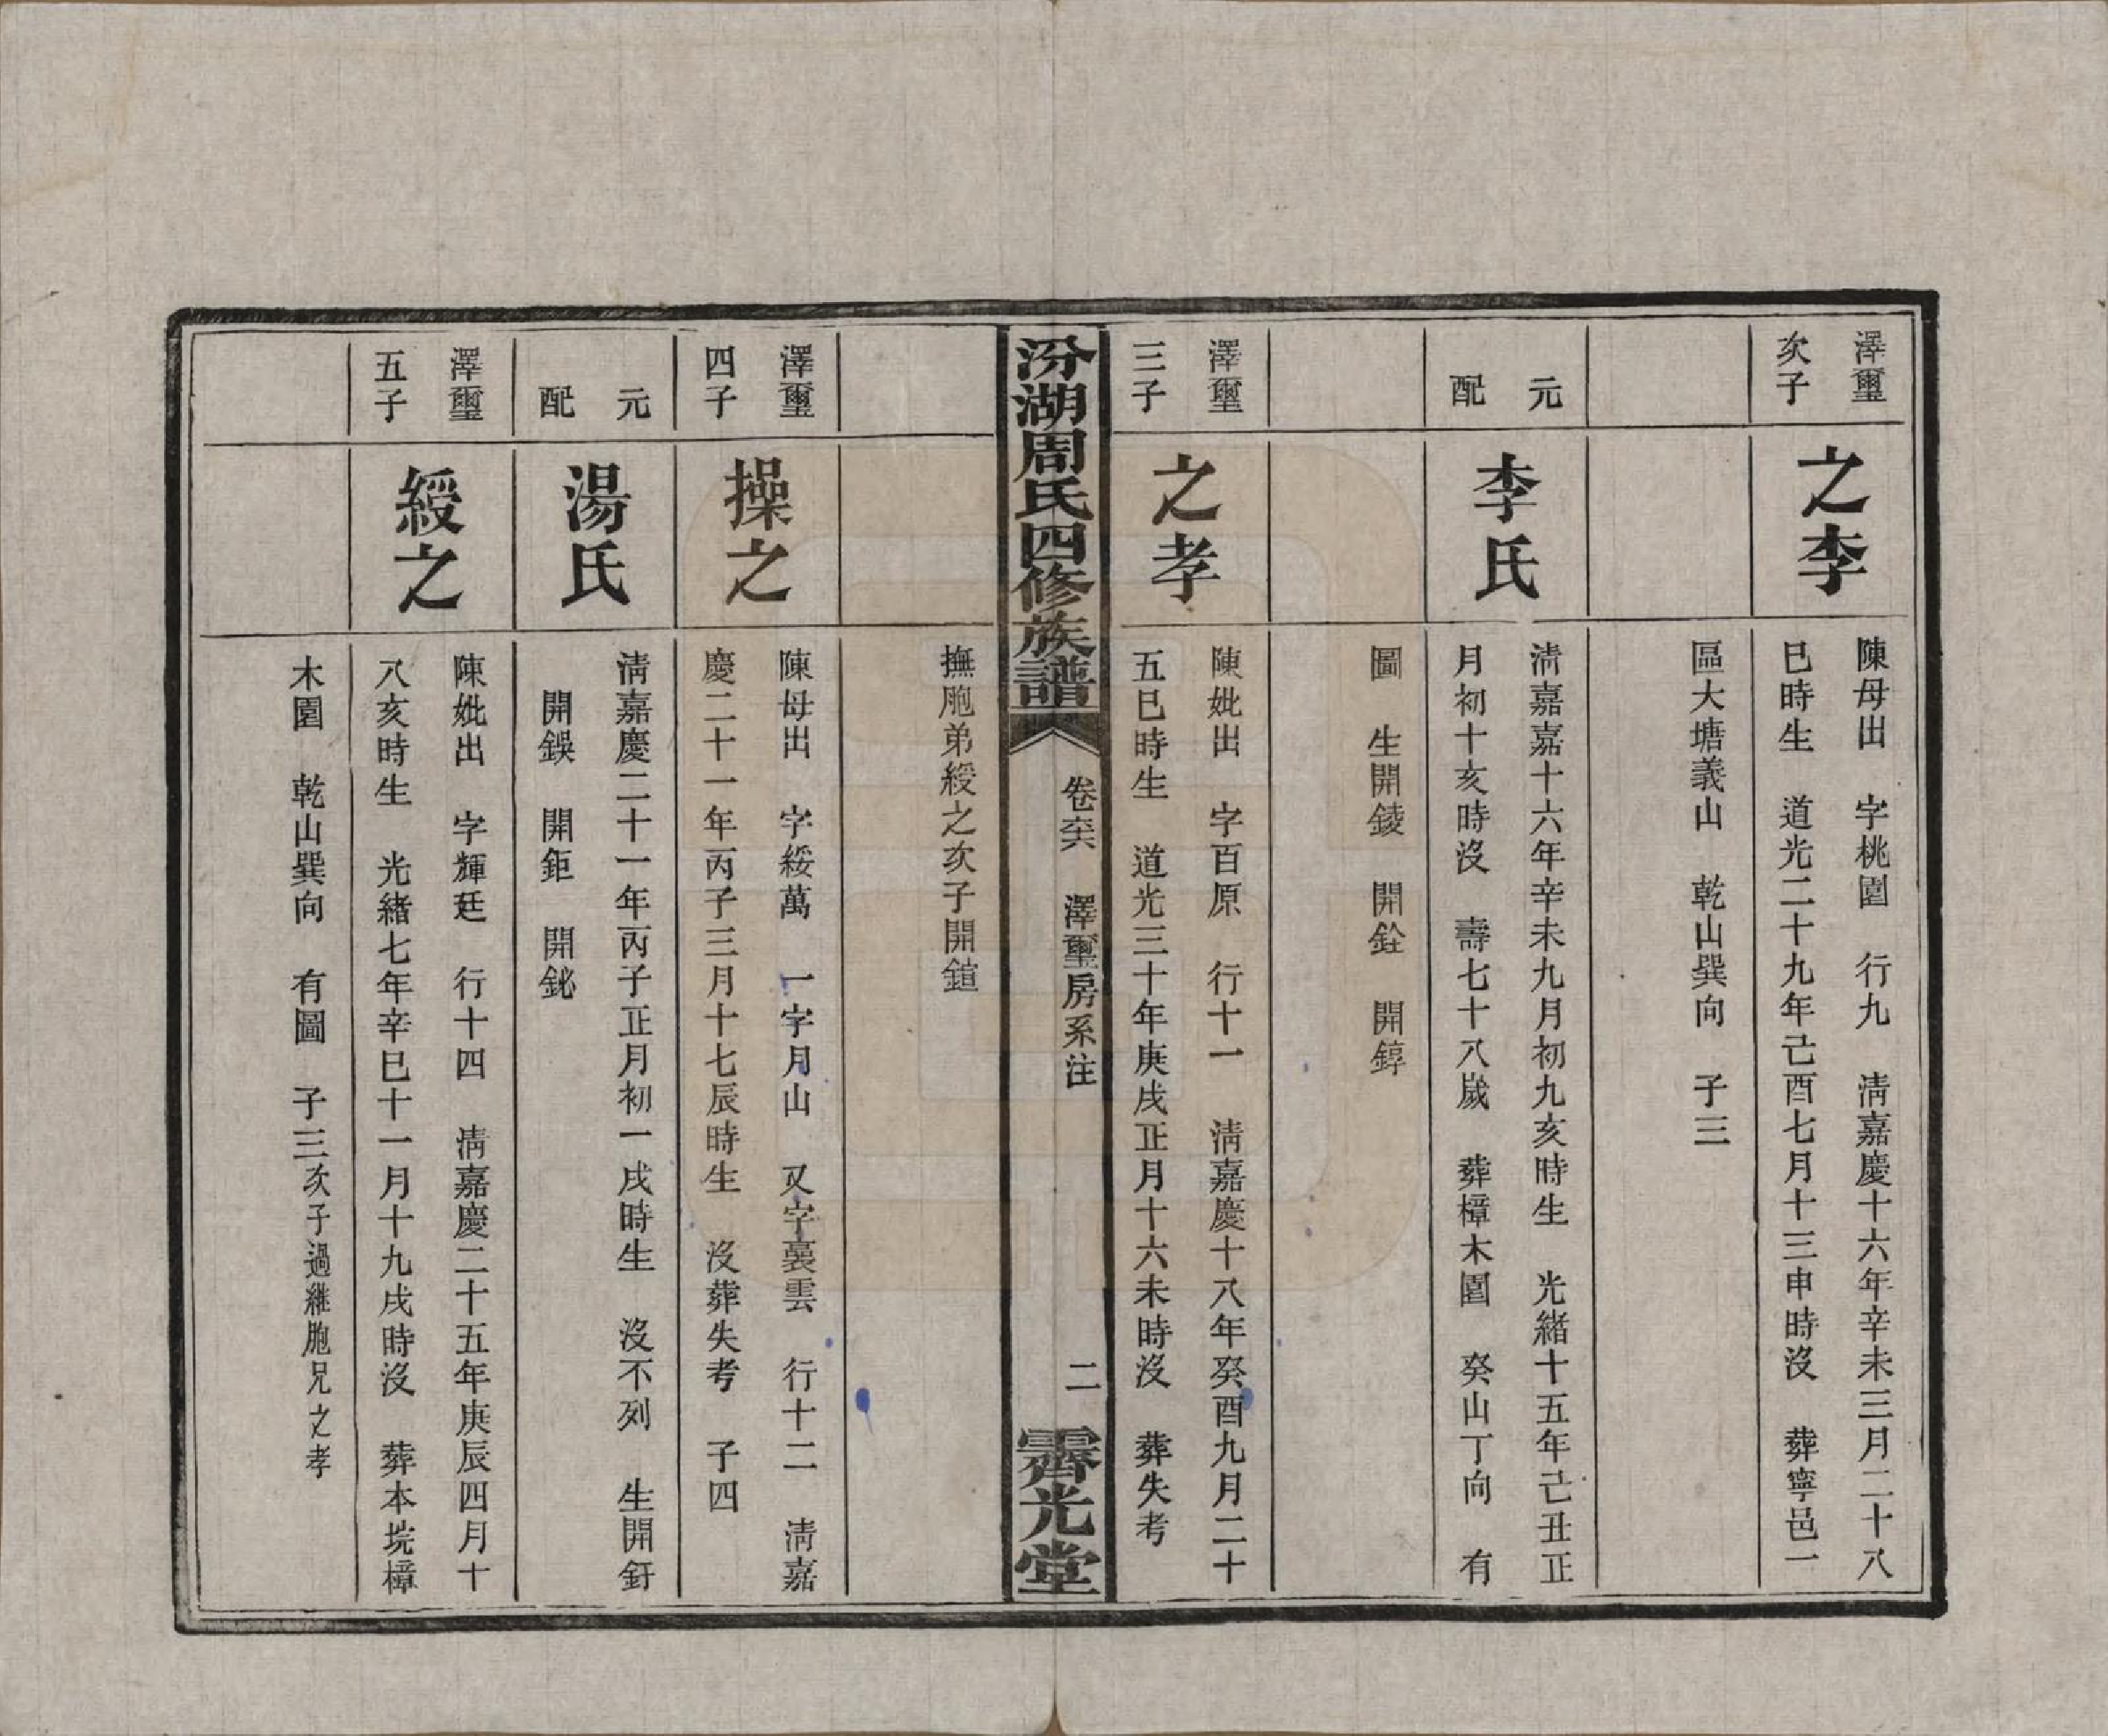 澤璽
次子
之李
陳母出　字桃園　行九　清嘉慶十六年辛未三月二十八
巳時生　道光二十九年己酉七月十三申時沒　葬寧邑一
區大塘義山　乾山巽向　子三
元
配
李氏
清嘉嘉十六年辛未九月初九亥時生　光緒十五年己丑正
月初十亥時沒　壽七十八歲　葬樟木園　癸山丁向　有
圖　生開錂　開銓　開錞
澤璽
三子
之孝
陳妣出　字百原　行十一　清嘉慶十八年癸酉九月二十
五巳時生　道光三十年庚戌正月十六未時沒　葬失考
撫胞弟綬之次子開鍹
汾湖周氏四修族譜
卷六六　澤璽房系注　二
霽光堂
澤璽
四子
操之
陳母出　字綏萬　一字月山　又字裛雲　行十二　清嘉
慶二十一年丙子三月十七辰時生　沒葬失考　子四
元
配
湯氏
清嘉慶二十一年丙子正月初一戌時生　沒不列　生開釬
開鋘　開鉅　開鉍
澤璽
五子
綬之
陳妣出　字輝廷　行十四　清嘉慶二十五年庚辰四月十
八亥時生　光緒七年辛巳十一月十九戌時沒　葬本垸樟
木園　乾山巽向　有圖　子三次子過繼胞兄之孝